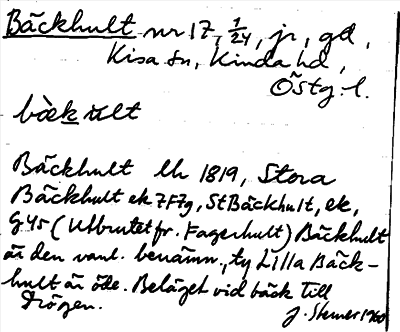 Bäckhult nr 17, 1/24, jr, gd,
Kisa sn, Kinda hd,
Östg. l.
bäckult
Bäckhult lh 1819, Stora
Bäckhult ek 7F7g, St Bäckhult, ek,
G 45 (Utbrutet fr. Fagerhult) Bäckhult
är den vanl. benämn., ty Lilla Bäck-
hult är öde. Beläget vid bäck till
Drögen.
J. Sterner 1960